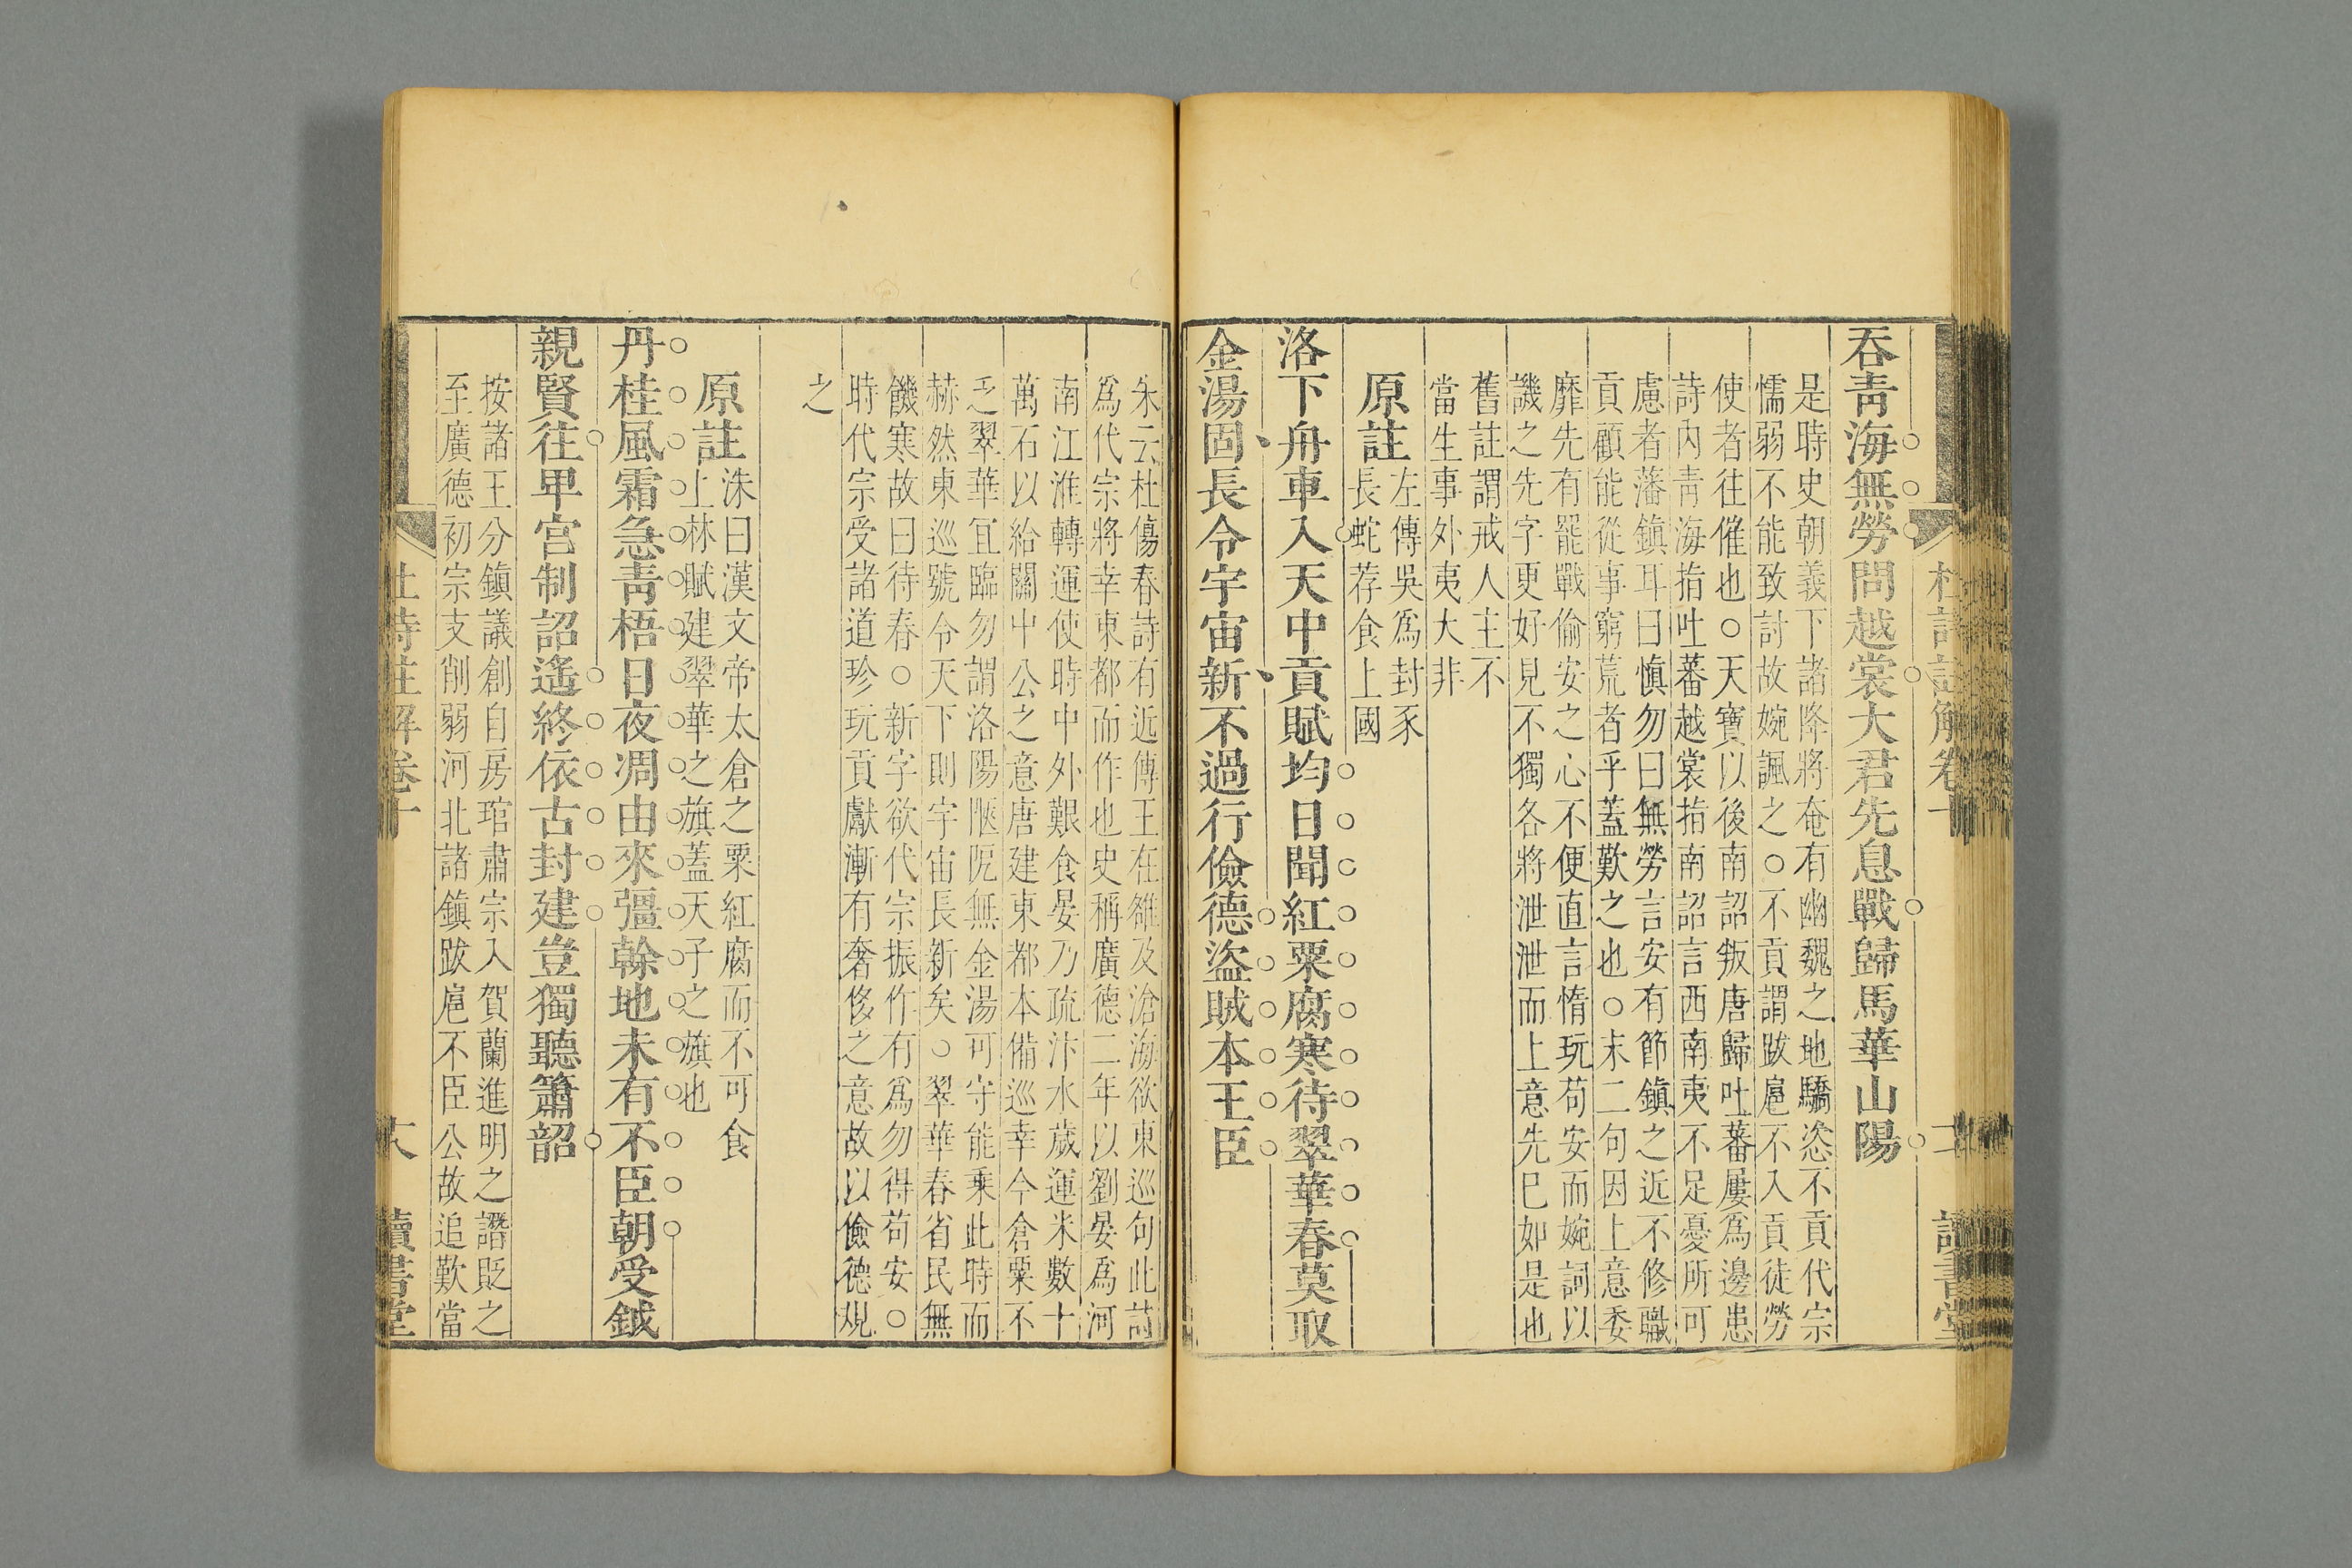 吞青海無勞問越裳大君先息戰歸馬華山陽
是時史朝義下諸降將奄有幽魏之地驕恣不貢代宗
懦弱不能致討故婉諷之○不貢謂跋扈不入貢徒勞
使者往催也○天寶以後南詔叛唐歸吐蕃屢爲邊患
詩內青海指吐蕃越裳指南詔言西南夷不足憂所可
慮者藩鎮耳曰慎勿曰無勞言安有節鎮之近不修職
貢顧能從事窮荒者乎蓋歎之也○末二句因上意委
靡先有罷戰偷安之心不便直言惰玩苟安而婉詞以
譏之先字更好見不獨各將泄泄而上意先已如是也
舊註謂戒人主不
當生事外夷大非
原註
左傳吳爲封豕
長蛇荐食上國
洛下舟車入天中貢賦均日聞紅粟腐寒待翠華春莫取
金湯固長令宇宙新不過行儉德盜賊本王臣
朱云杜傷春詩有近傳王在雒及滄海欲東巡句此詩
爲代宗將幸東都而作也史稱廣德二年以劉晏爲河
南江淮轉運使時中外艱食晏乃疏汴水歲運米數十
萬石以給關中公之意唐建東都本備巡幸今倉粟不
乏翠華宜臨勿謂洛陽陿阨無金湯可守能乗此時而
赫然東巡號令天下則宇宙長新矣○翠華春省民無
饑寒故曰待春○新字欲代宗振作有爲勿得苟安○
時代宗受諸道珍玩貢獻漸有奢侈之意故以儉德規
之
原註
洙曰漢文帝太倉之粟紅腐而不可食
上林賦建翠華之旗蓋天子之旗也
丹桂風霜急青梧日夜凋由來彊榦地未有不臣朝受鉞
親賢往卑宮制詔遙終依古封建豈獨聽簫韶
按諸王分鎮議創自房琯肅宗入賀蘭進明之譖貶之
至廣德初宗支削弱河北諸鎮跋扈不臣公故追歎當